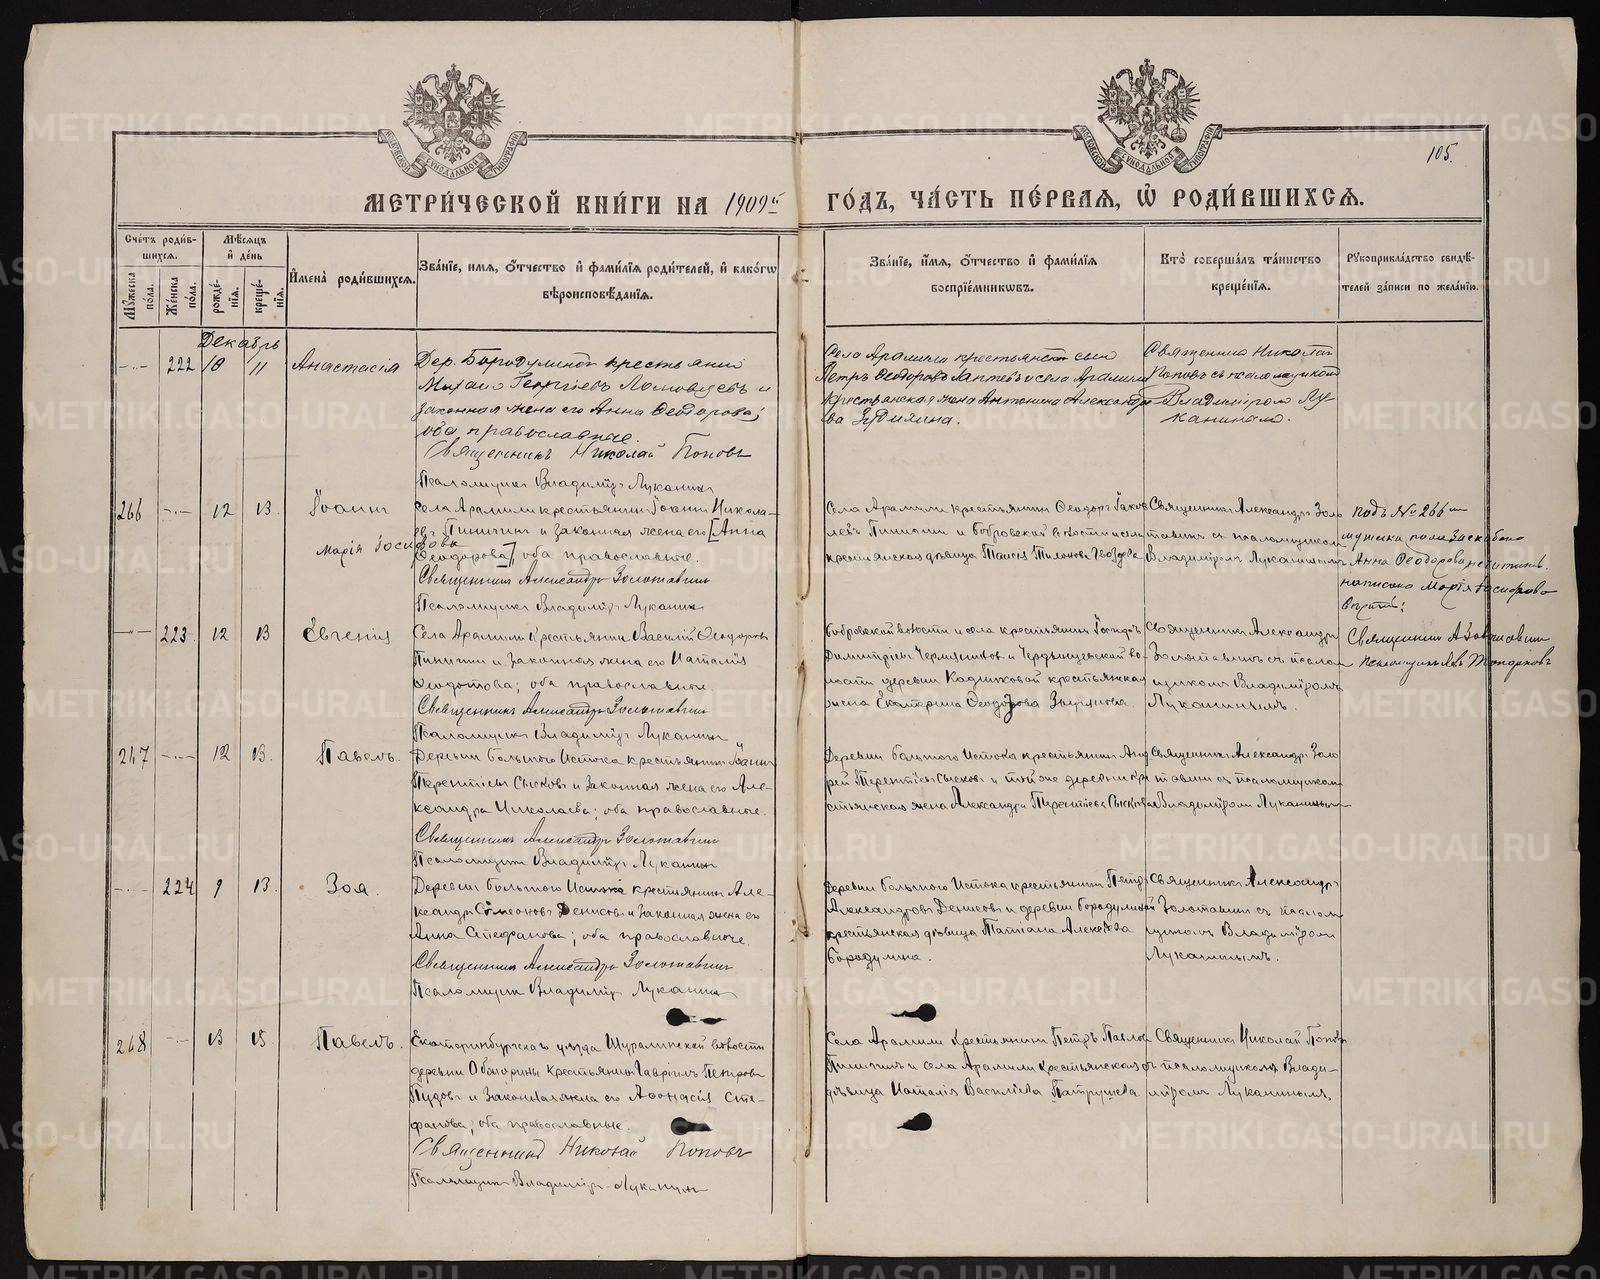 105.
МЕТРИ́ЧЕСКОЙ КНИ́ГИ НА 1909й ГО́ДЪ, ЧА́СТЬ ПЕ́РВАЯ, Ѡ҆ РОДИ́ВШИХСЯ.
Сче́тъ роди́в-
шихся.
Мѣ́сяцъ
и҆ де́нь
Мꙋ́жеска
по́ла.
Же́нска
по́ла.
рожде́-
нїя.
креще́-
нїя.
И҆мена̀ роди́вшихся.
Зва́нїе, и҆́мя, ѻ҆́тчество и҆ фами́лїя роди́телей, и҆ како́гѡ
вѣроисповѣ́данїя.
Зва́нїе, и҆́мя, ѻ҆́тчество и҆ фами́лїя
воспрїе́мникѡвъ.
Кто̀ соверша́лъ та́инство
креще́нїя.
Рꙋкоприкла́дство свидѣ́-
телей за́писи по жела́нїю.
Декабрь
222 10 11 Анастасія
Дер. Бородулиной крестьянин
Михаил Георгіевъ Ломовцевъ и
законная жена его Анна Феодорова;
оба православные.
Священникъ Николай Поповъ
Псаломщикъ Владиміръ Луканинъ
Села Арамили крестьянскій сын
Петръ Феодоровъ Лаптевъ и села Арамили
крестьянская жена Антонина Александро
ва Зудилина.
Священник Николай
Поповъ съ псаломщикомъ
Владиміром Лу
каниным.
266 12 13 Іоаннъ
Марія Іосифова
Села Арамили крестьянинъ Іоаннъ Никола-
евъ Пиничинъ и законная жена его [Анна
Феодорова], оба православные.
Священникъ Александръ Золотавинъ
Псаломщикъ Владиміръ Луканинъ
Села Арамили крестьянинъ Феодоръ Яков
левъ и бобровской волости
крестьянская дѣвица Таисія
Священникъ Александръ Золо
тавинъ съ псаломщикомъ
Владиміромъ Луканинымъ
Подъ № 266 м
мужска пола
Анна Феодорова
написано Марія Іосифова
вѣрить:
Священник А Золотавин
223 12 13 Евгенія
Села Арамили Крестьянинъ Василій Феодоровъ
Пиничинъ и законная жена его Наталія
Феодотова; оба православные.
Священникъ Александръ Золотавинъ
Псаломщикъ Владиміръ Луканинъ
Бобровской волости и села крестьянинъ
Димитріевъ и
волости деревни крестьянская
жена Екатерина Феодорова
Священникъ Александръ
Золотавинъ съ псалом
щикомъ Владиміромъ
Луканинымъ.
267 12 13 Павелъ.
Деревни большого Истока крестьянинъ Іоаннъ
Терентіевъ Сысковъ и законная жена его Але-
ксандра Николаева; оба православные.
Священникъ Александръ Золотавинъ
Псаломщикъ Владиміръ Луканинъ
Деревни большого Истока крестьянинъ Анд
рей Терентіевъ Сысковъ и той же деревни кре
стьянская жена Александра Терентіева Сыскова
Священникъ Александръ Золо
тавинъ съ псаломщиком
Владиміромъ Луканинымъ
224 9 13 Зоя.
Деревни большого Истока крестьянинъ Але-
ксандръ Симеоновъ Денисовъ и законная жена его
Анна Стефанова; оба православные.
Священникъ Александръ Золотавинъ
Псаломщик Владиміръ Луканинъ
Деревни большого Истока крестьянинъ Петръ
Александровъ Денисовъ и деревни бородулиной
крестьянская дѣвица Татіана Алексѣева
Бородулина.
Священникъ Александръ
Золотавинъ съ псалом
щикомъ Владиміромъ
Луканинымъ.
268 13 15 Павелъ.
Екатеринбургскаго уѣзда Шуралинской волости
деревни крестьянинъ Гавріилъ Петровъ
Пудовъ и законная жена его Афонасія Сте-
фанова; оба православные.
Священник Николай Поповъ
Псаломщикъ Владиміръ Луканинъ
Села Арамили Крестьянинъ Петръ Павлов
Пиничинъ и села Арамили крестьянская
дѣвица Наталія Василіева Патрушева
Священникъ Николай Поповъ
съ псаломщикомъ Влади-
міромъ Луканинымъ.
METRIKI.GASO-URAL.RU